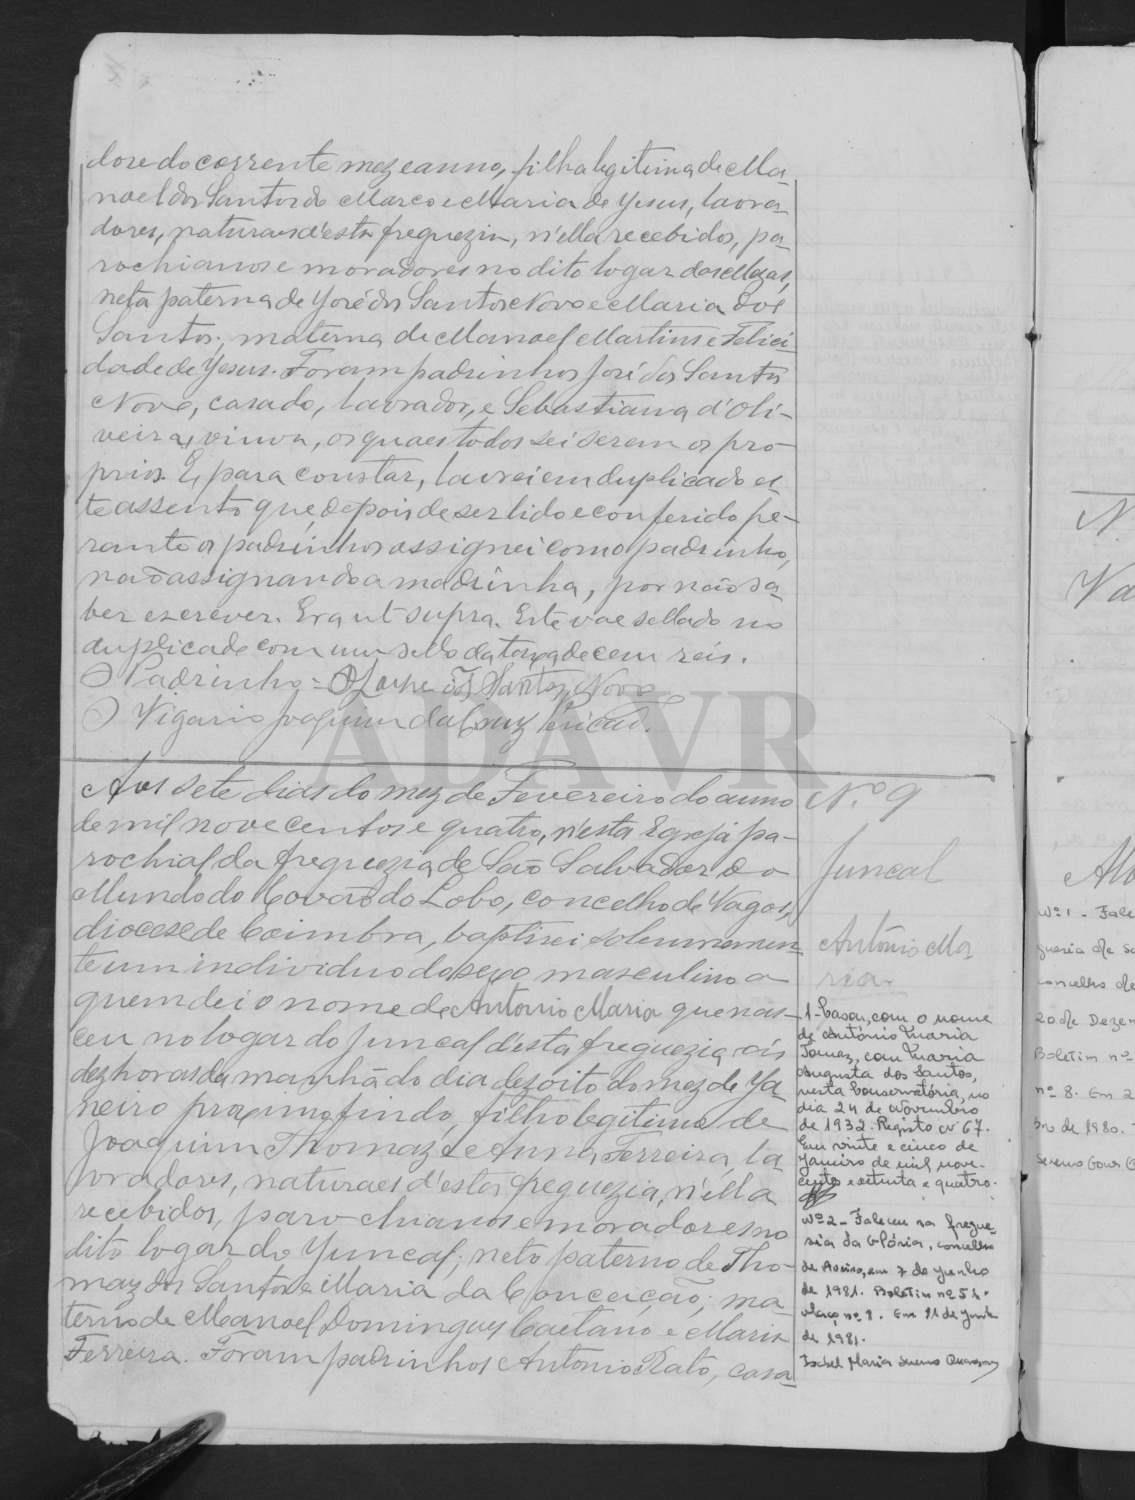 doze do corrente mez e anno, filha legitima de Ma-
noel dos Santos do Marco e Maria de Jesus, lavra-
dores, naturaes d'esta freguezia, n'ella recebidos, pa-
rochianos e moradores no dito logar das Mezas,
neta paterna de José dos Santos Novo e Maria dos
Santos; materna de Manoel Martins e Felici-
dade de Jesus. Foram padrinhos José dos Santos
Novo, casado, lavrador, e Sebastiana d'Oli-
veira, viuva, os quaes todos sei serem os pro-
prios. E, para constar, lavrei em duplicado es-
te assento que, depois de ser lido e conferido pe-
rante os padrinhos assignei com o padrinho,
não assignando a madrinha, por não sa-
ber escrever. Era ut supra. Este vae sellado no
duplicado com um sello da taxa de cem reis.
O Padrinho = dos Santos Novo
O Vigario Joaquim da Cruz
ADAVR
Aos sete dias do mez de Fevereiro do anno
de mil nove centos e quatro, n'esta Egreja pa-
rochial da freguezia de São Salvador do
Mundo do Covão do Lobo, concelho de Vagos,
diocese de Coimbra, baptisei solemnemen-
te um individuo do sexo masculino a
quem dei o nome de Antonio Maria que nas-
ceu no logar do Juncal d'esta freguezia ás
dez horas da manhã do dia dezoito do mez de Ja-
neiro proximo findo, filho legitimo de
Joaquim Thomaz e Anna Ferreira, la-
vradores, naturaes d'esta freguezia, n'ella
recebidos, parochianos e moradores no
dito logar do Juncal; neto paterno de Tho-
maz dos Santos e Maria da Conceição; ma-
terno de Manoel Domingues Caetano e Maria
Ferreira. Foram padrinhos Antonio Rato, casa-
N.º 9
Juncal
Antonio Ma
ria
1- Casou, com o nome
de António Maria
Tomaz, com Maria
Augusta dos Santos,
nesta Conservatória, no
dia 24 de Novembro
de 1932. Registo nº 67.
Em vinte e cinco de
Janeiro de mil nove-
centos e setenta e quatro.
Nº 2 - Faleceu na fregue-
sia da Glória, concelho
de Aveiro, em 7 de Junho
de 1981. Boletim nº 51.
maço nº 8. Em 11 de Junho
de 1981.
Isabel Maria
N.
Va
Nº 1 - Fale
guesia de S
concelho de
20 de Dezem
Boletim nº
nº 8. Em 2
bro de 1980.